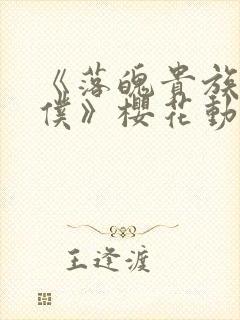 《落魄貴族
僕》櫻花動
王逢渡